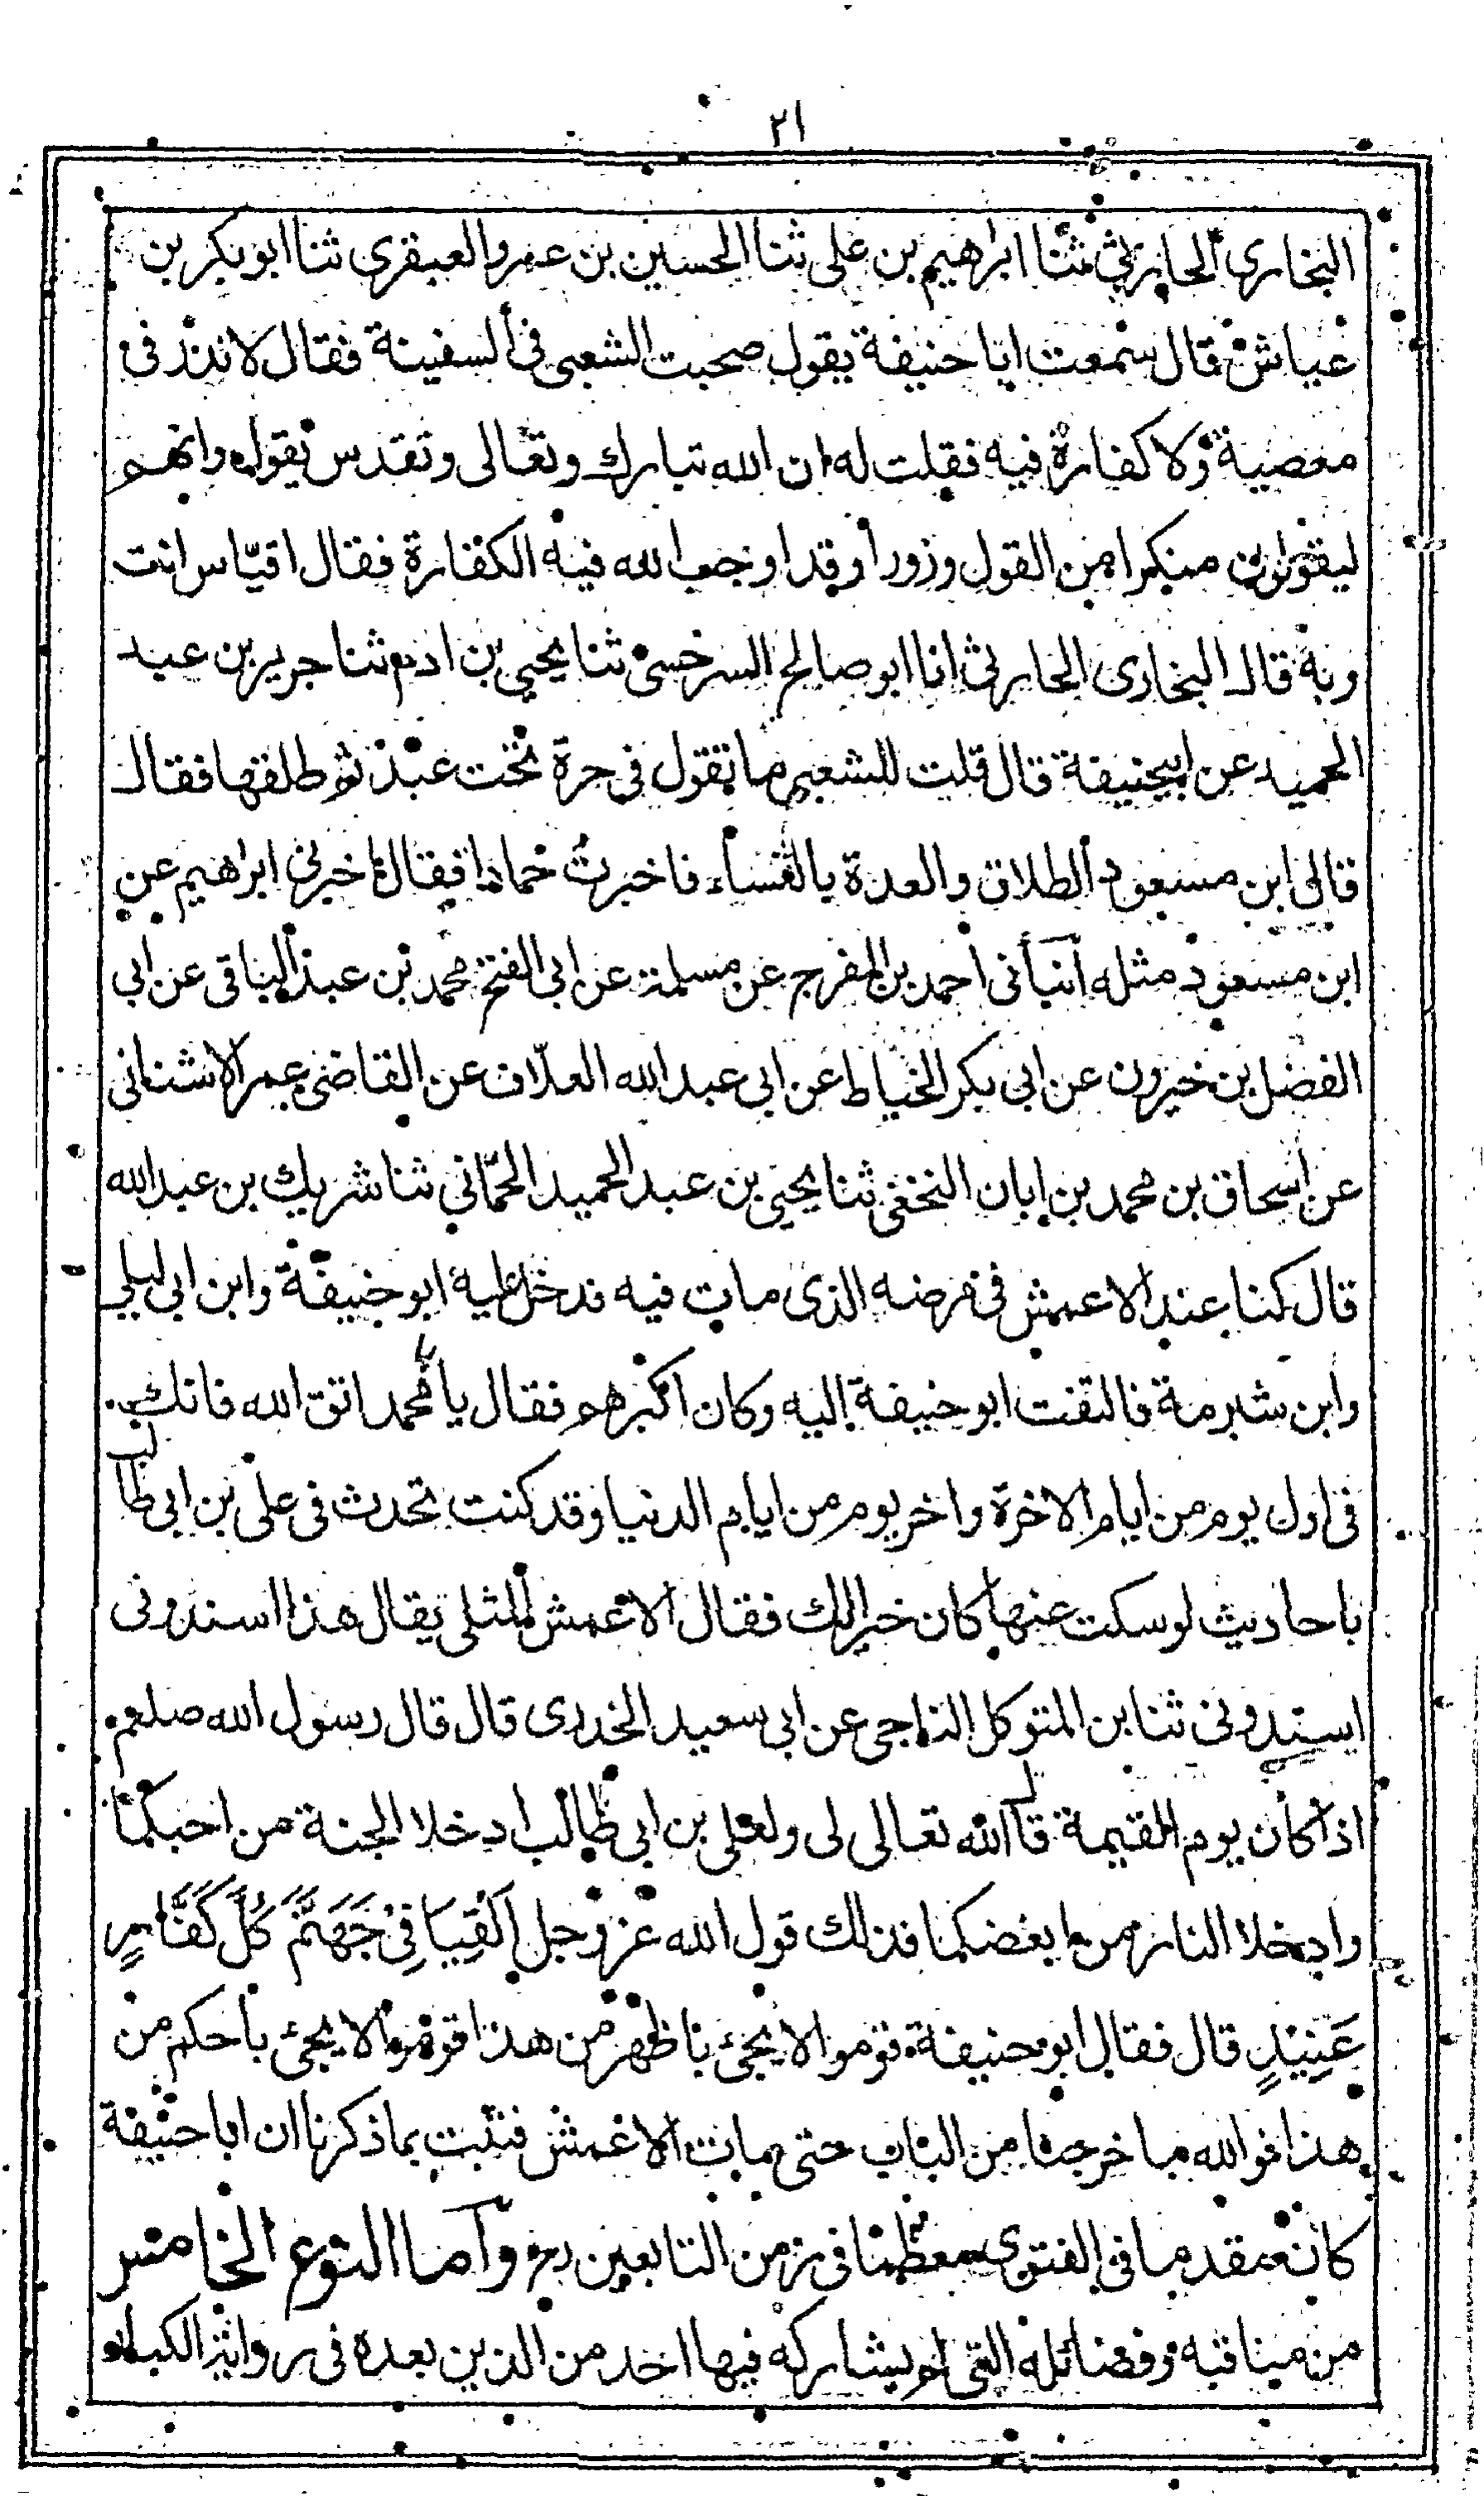 ٢١
البخارى الحارثى ثنا ابراهيم بن على ثنا الحسين بن عمرو العبقرى ثنا ابو بكر بن
عياش قال سمعت ابا حنيفة يقول صحبت الشعبى فى السفينة فقال لا نذر فى
معصية ولا كفارة فيه فقلت له ان الله تبارك وتعالى وتقدس يقول وانهم
ليقولون منكرا من القول وزورا وقد اوجب الله فيه الكفارة فقال اقيّاس انت
وبه قال البخارى الحارثى انا ابو صالح السرخسى ثنا يحيى بن ادم ثنا جرير بن عبد
الحميد عن ابيحنيفة قال قلت للشعبى ما تقول فى حرة تحت عبد ثم طلقها فقال
قال لى ابن مسعود الطلاق والعدة بالنساء فاخبرت حمادا فقال اخبرنى ابراهيم عن
ابن مسعود مثله آنبأنى احمد بن المفرج عن مسلمة عن ابى الفتح محمد بن عبد الباقى عن ابى
الفضل بن خيرون عن ابى بكر الخياط عن ابى عبد الله العلّاف عن القاضى عمر الاشنانى
عن اسحاق بن محمد بن ابان النخعى ثنا يحيى بن عبد الحميد الحمّانى ثنا شريك بن عبد الله
قال كنا عند الاعمش فى مرضه الذى مات فيه فدخل عليه ابو حنيفة وابن ابى ليلى
وابن شبرمة فالتفت ابو حنيفة اليه وكان اكبرهم فقال يا با محمد اتق الله فانك
فى اول يوم من ايام الاخرة واخر يوم من ايام الدنيا وقد كنت تحدث فى على بن ابى طالب
باحاديث لو سكت عنها كان خيرا لك فقال الاعمش المثلى يقال هذا اسندونى
اسندونى ثنا بن المتوكل الناجى عن ابى سعيد الخدرى قال قال رسول الله صلعم
اذا كان يوم القيمة قال الله تعالى لى ولعلى بن ابى طالب ادخلا الجنة من احبكما
وادخلا النار من ابغضكما فذلك قول الله عز وجل اَلْقِيَا فِىْ جَهَنَّمَ كُلَّ كَفَّارٍ
عَنِيْدٍ قال فقال ابو حنيفة قوموا لا يجئ باظهر من هذا قوموا لا يجئ باحكم من
هذا فوالله ما خرجنا من الباب حتى مات الاعمش فثبت بما ذكرنا ان ابا حنيفة
كان متقدما فى الفتوى معظما فى زمن التابعين رح وآما النوع الخامس
من مناقبه وفضائله التى لم يشاركه فيها احد من الذين بعده فى رواية الكبار